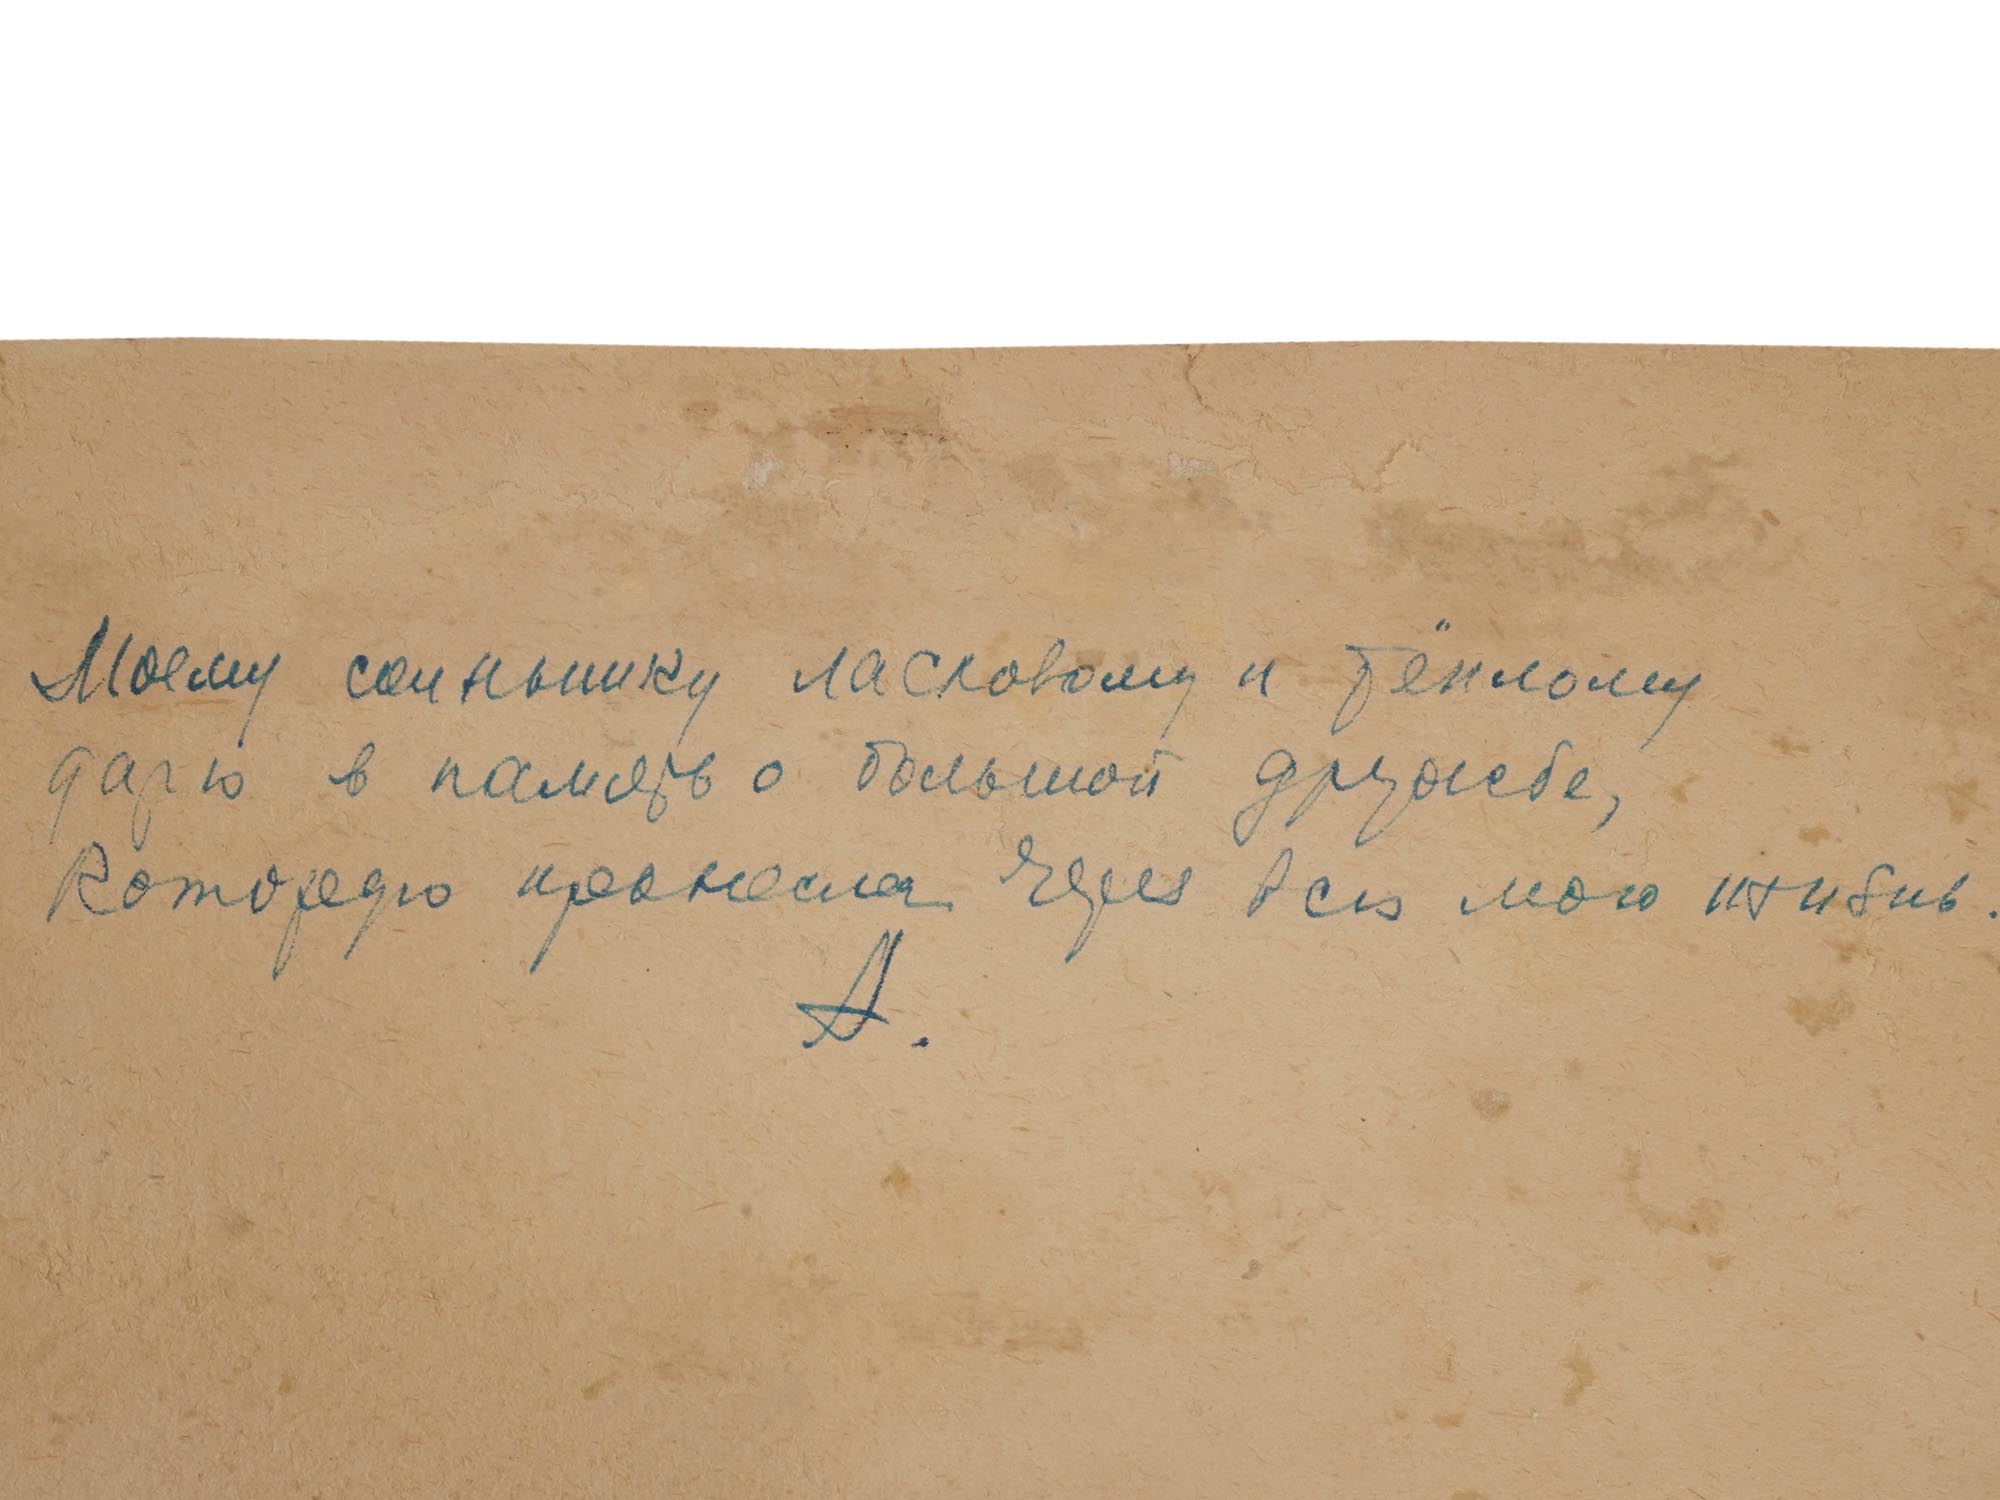 Моему солнышку ласковому и тёплому
дарю в память о большой дружбе,
которую пронесла через всю мою жизнь.
А.